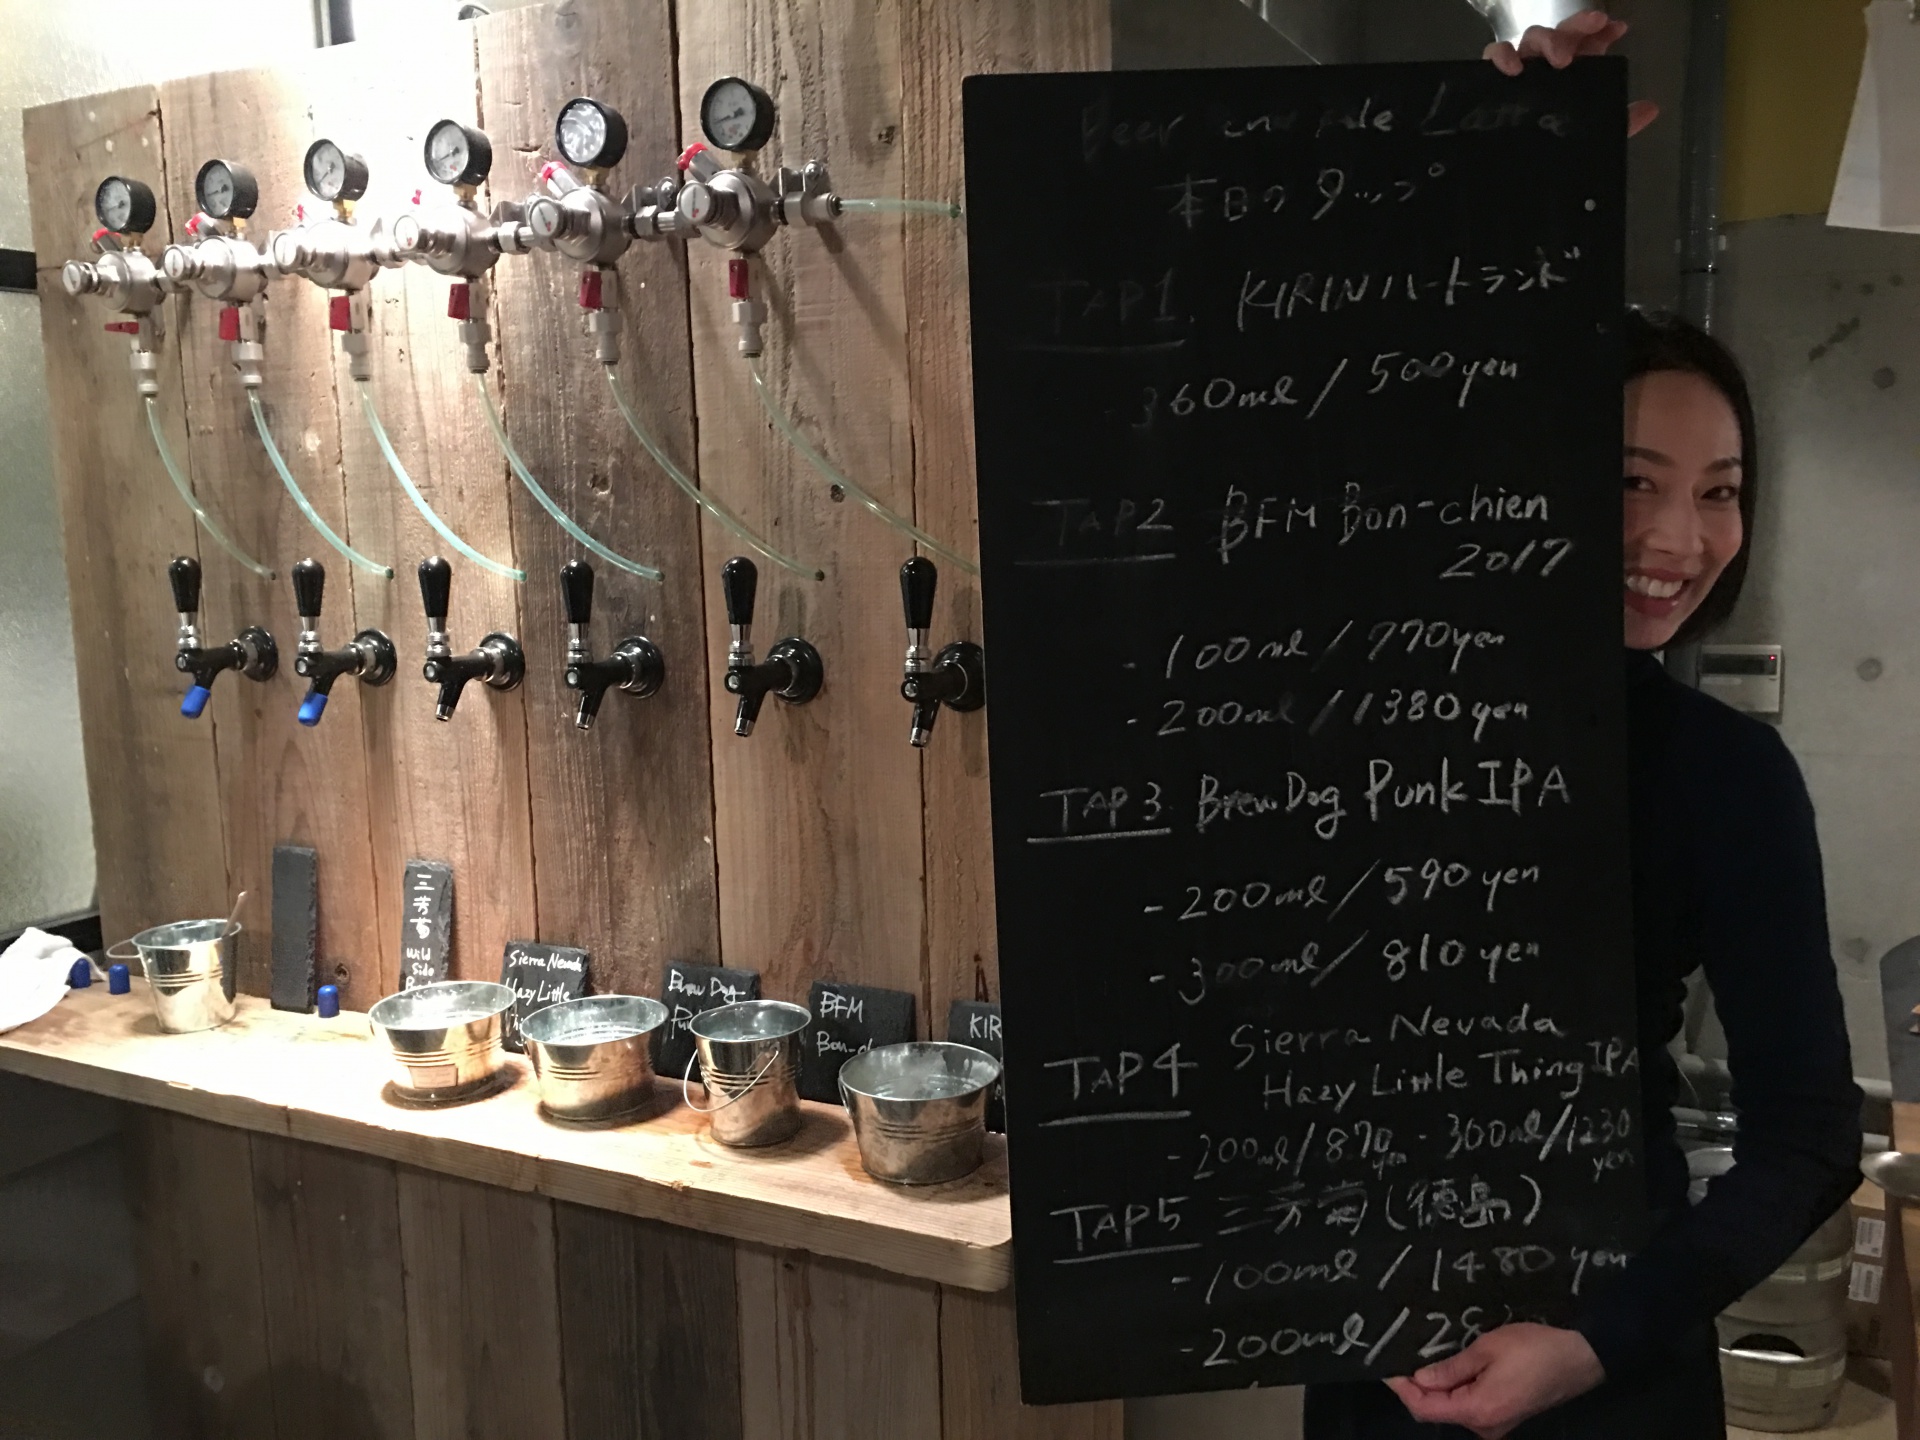 三芳菊
Wild
Side
Sierra Nevada
Hazy Little
Brew Dog
BFM
KIR
Beer
本日のタップ
TAP1. KIRINハートランド
- 360ml / 500yen
TAP2 BFM Bon-chien
2017
- 100ml / 770yen
- 200ml / 1380yen
TAP3 BrewDog Punk IPA
- 200ml / 590 yen
- 300ml / 810 yen
Sierra Nevada
TAP4 Hazy Little Thing IPA
- 200ml / 870 yen - 300ml / 1230 yen
TAP5 三芳菊 (徳島)
- 100ml / 1480 yen
- 200ml /